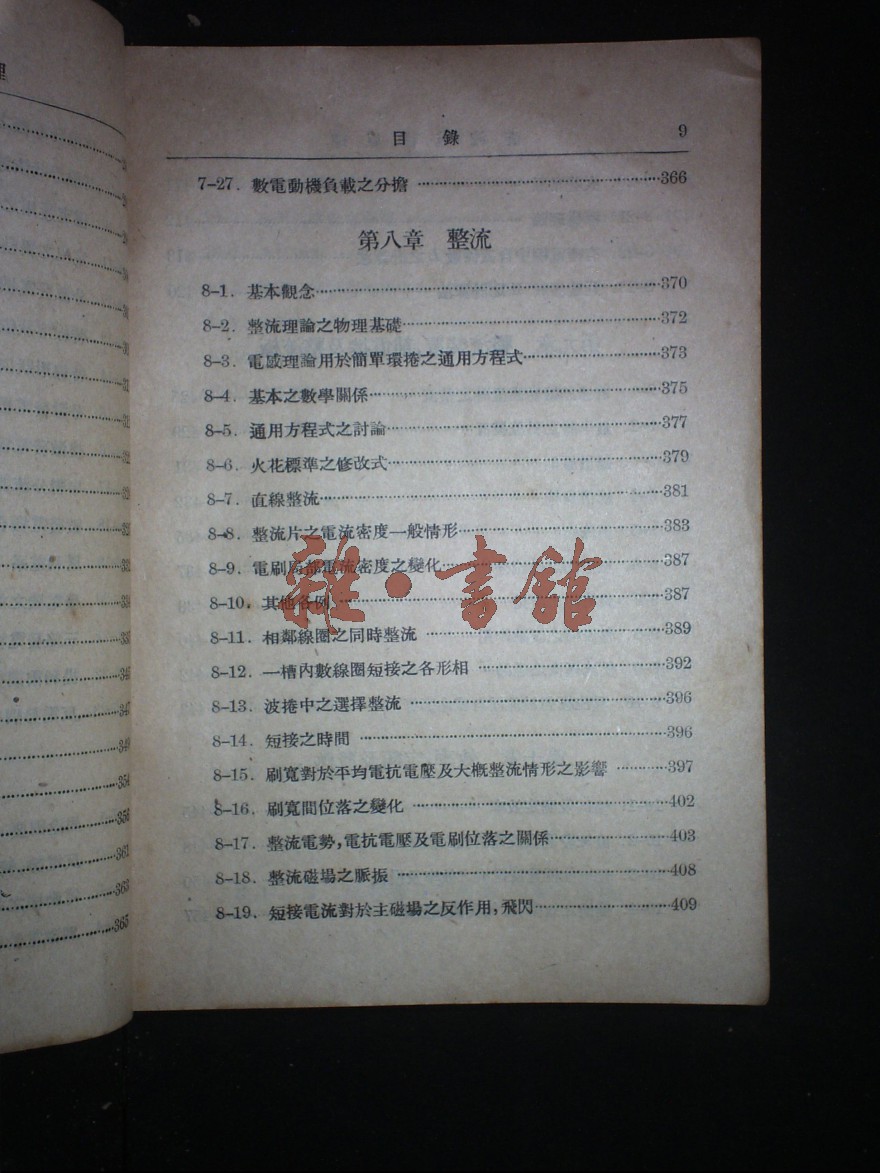 目錄 9
7-27. 數電動機負載之分擔 ……366
第八章 整流
8-1. 基本觀念……370
8-2. 整流理論之物理基礎……372
8-3. 電感理論用於簡單環捲之通用方程式……373
8-4. 基本之數學關係……375
8-5. 通用方程式之討論……377
8-6. 火花標準之修改式……379
8-7. 直線整流……381
8-8. 整流片之電流密度一般情形……383
8-9. 電刷局部電流密度之變化……387
8-10. 其他各例……387
8-11. 相鄰線圈之同時整流……389
8-12. 一槽內數線圈短接之各形相……392
8-13. 波捲中之選擇整流……396
8-14. 短接之時間……396
8-15. 刷寬對於平均電抗電壓及大概整流情形之影響……397
8-16. 刷寬間位落之變化……402
8-17. 整流電勢,電抗電壓及電刷位落之關係……403
8-18. 整流磁場之脈振……408
8-19. 短接電流對於主磁場之反作用,飛閃……409
雜·書館
理
347
349
354
356
361
363
365